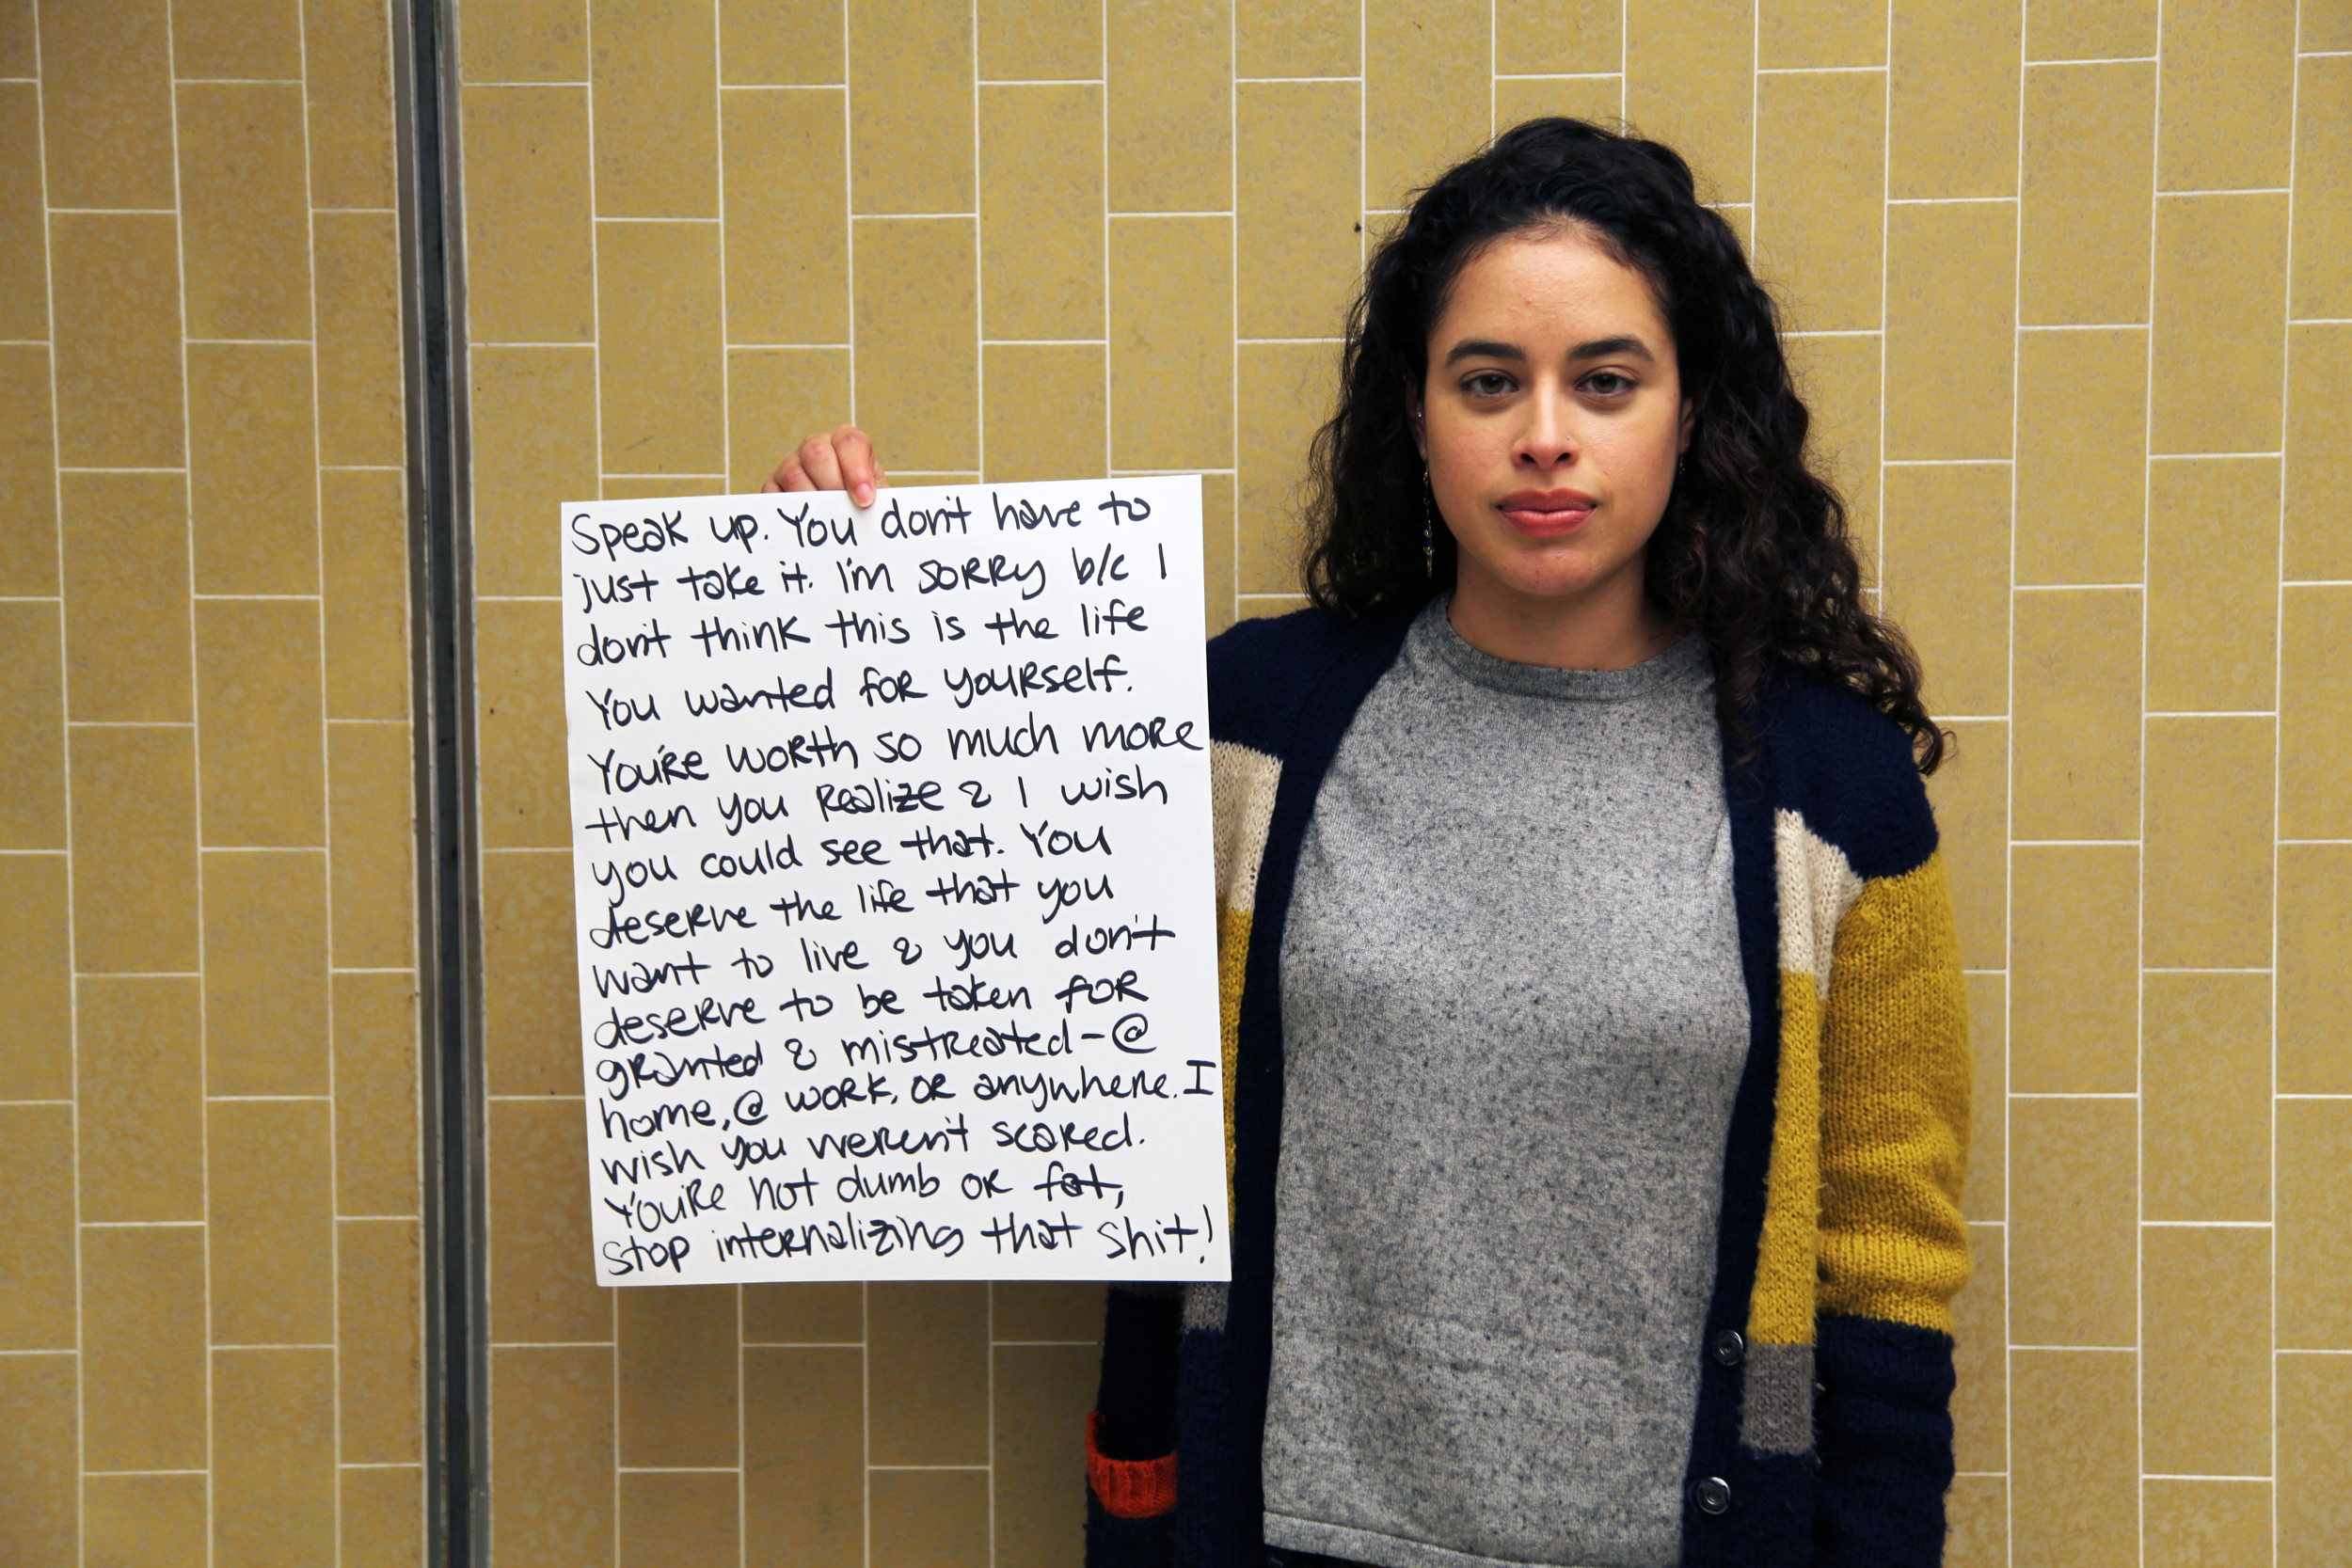 Speak up. You don't have to
just take it. I'm sorry b/c I
don't think this is the life
You wanted for yourself.
You're worth so much more
then you realize & I wish
you could see that. You
deserve the life that you
want to live & you don't
deserve to be taken for
granted & mistreated-@
home, @ work, or anywhere. I
wish you weren't scared.
You're not dumb or fat,
stop internalizing that shit!